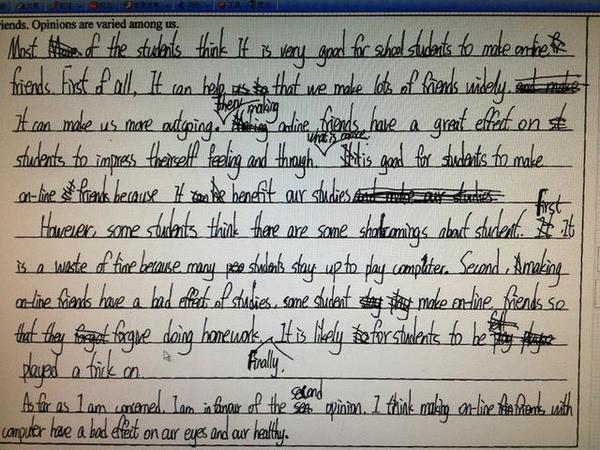 riends. Opinions are varied among us.
Most of the students think It is very good for school students to make on-line
friends. First of all, It can help that we make lots of friends widely.
It can make us more outgoing. then, making on-line friends have a great effect on
students to impress theirself feeling and through. what is more, It is good for students to make
on-line friends because It can benefit our studies
However, some students think there are some shortcomings about student. first. It
is a waste of time because many students stay up to play computer. Second, making
on-line friends have a bad effect of studies. some student make on-line friends so
that they forgive doing homework. Finally. It is likely for students to be
played a trick on.
As far as I am concerned, I am in favour of the second opinion. I think making on-line friends with
computer have a bad effect on our eyes and our healthy.